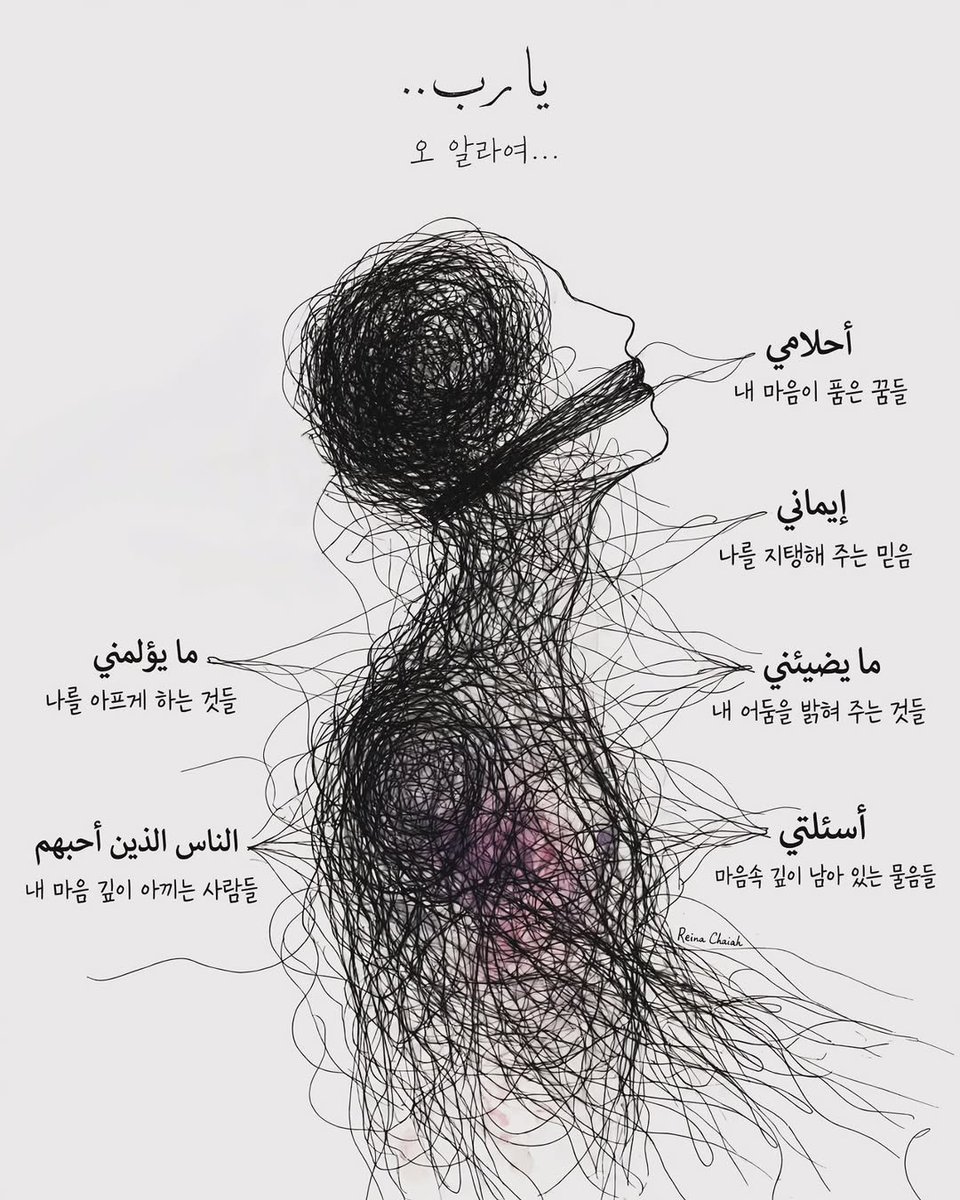 يا رب..
오 알라여...
أحلامي
내 마음이 품은 꿈들
إيماني
나를 지탱해 주는 믿음
ما يؤلمني
나를 아프게 하는 것들
ما يضيئني
내 어둠을 밝혀 주는 것들
الناس الذين أحبهم
내 마음 깊이 아끼는 사람들
أسئلتي
마음속 깊이 남아 있는 물음들
Reina Chaiah